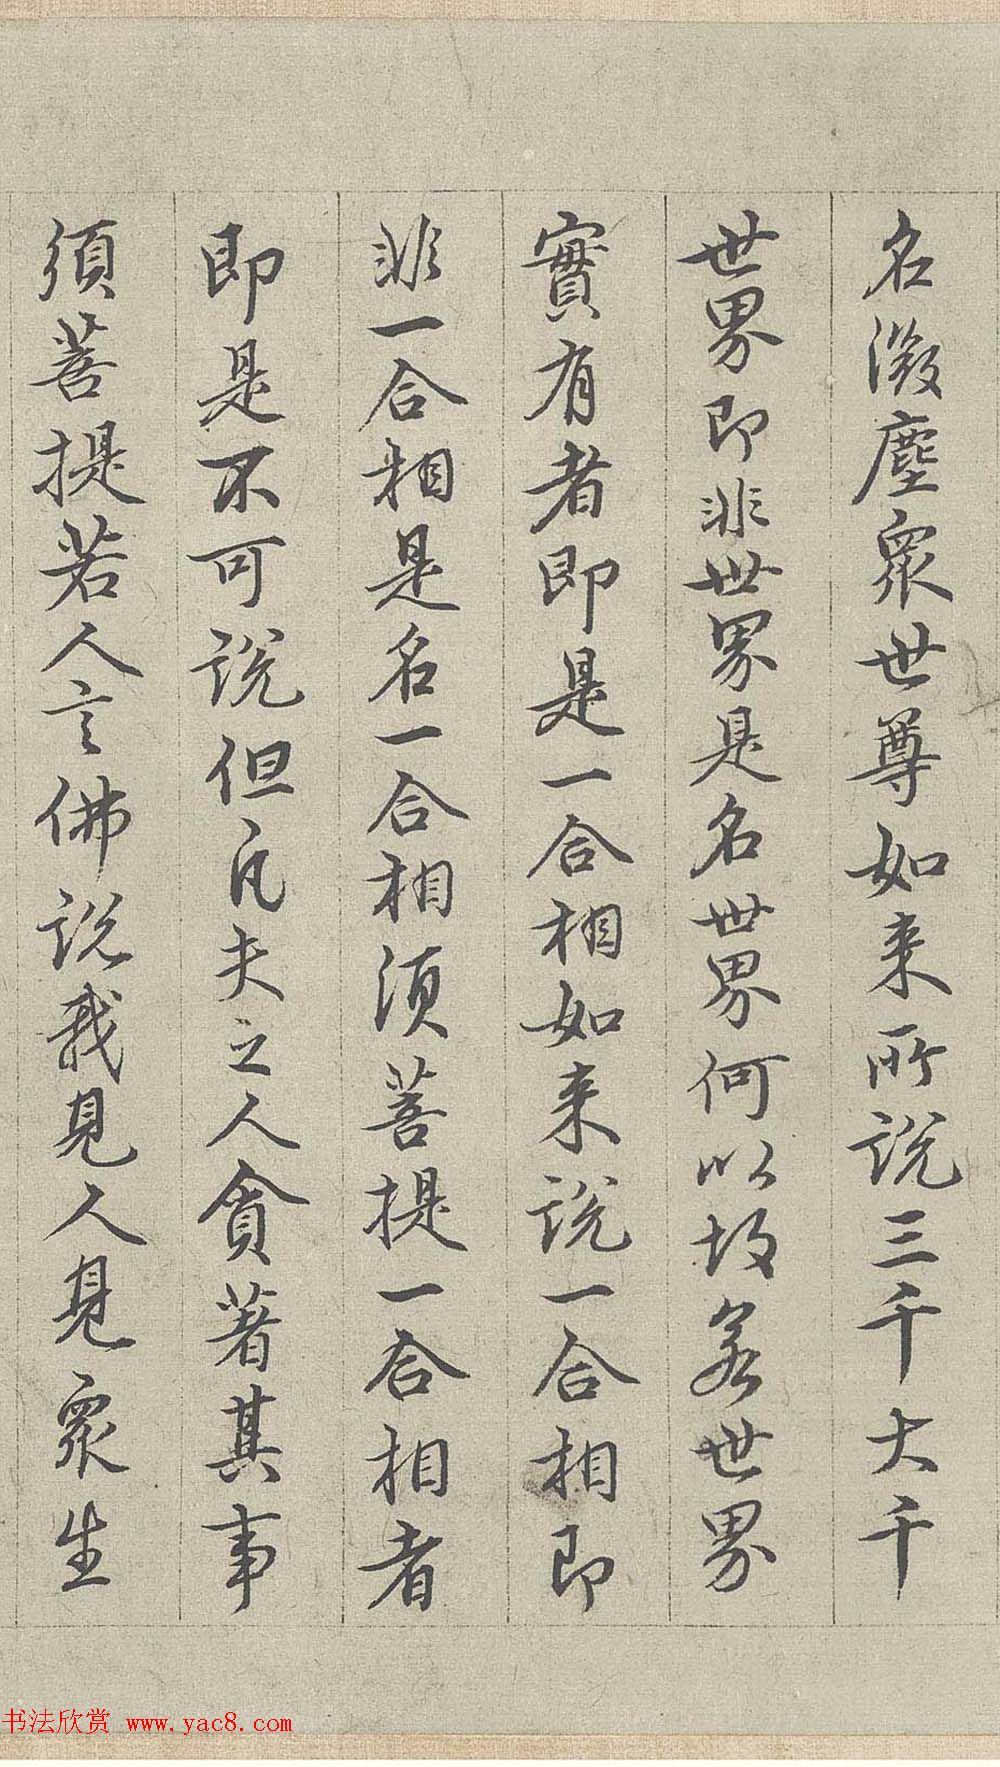 名微塵眾世尊如來所說三千大千
世界即非世界是名世界何以故若世界
實有者即是一合相如來說一合相即
非一合相是名一合相須菩提一合相者
即是不可說但凡夫之人貪著其事
須菩提若人言佛說我見人見眾生
书法欣赏 www.yac8.com